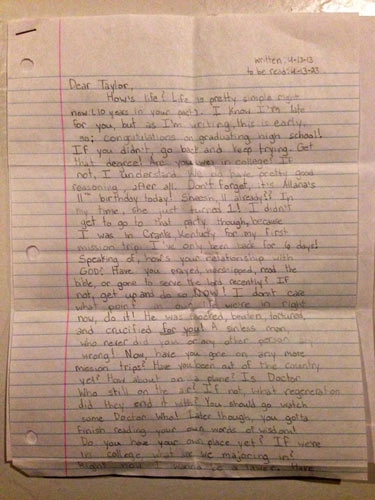 written: 4-13-13
to be read: 4-13-23
Dear Taylor,
How's life? Life is pretty simple right
now (10 years in your past). I know I'm late
for you, but as I'm writing, this is early,
so; congratulations on graduating high school!
If you didn't, go back and keep trying. Get
that degree! Are you in college? If
not, I understand. We do have pretty good
reasoning, after all. Don't forget, it's Allana's
11th birthday today! Sheesh, 11 already?? In
my time, she just turned 1! I didn't
get to go to that party though, because
I was in Cranks, Kentucky for my first
mission trip. I've only been back for 6 days!
Speaking of, how's your relationship with
GOD? Have you prayed, worshipped, read the
bible, or gone to serve the Lord recently? If
not, get up and do so NOW! I don't care
what point in our life we're at right
now, do it! He was mocked, beaten, tortured,
and crucified for you! A sinless man,
who never did you or any other person any
wrong! Now, have you gone on any more
mission trips? Have you been out of the country
yet? How about on a plane? Is Doctor
Who still on the air? If not, what regeneration
did they end it with? You should go watch
some Doctor Who! Later though, you gotta
finish reading your own words of wisdom!
Do you have your own place yet? If we're
in college, what are we majoring in?
Right now, I wanna be a lawyer. Have